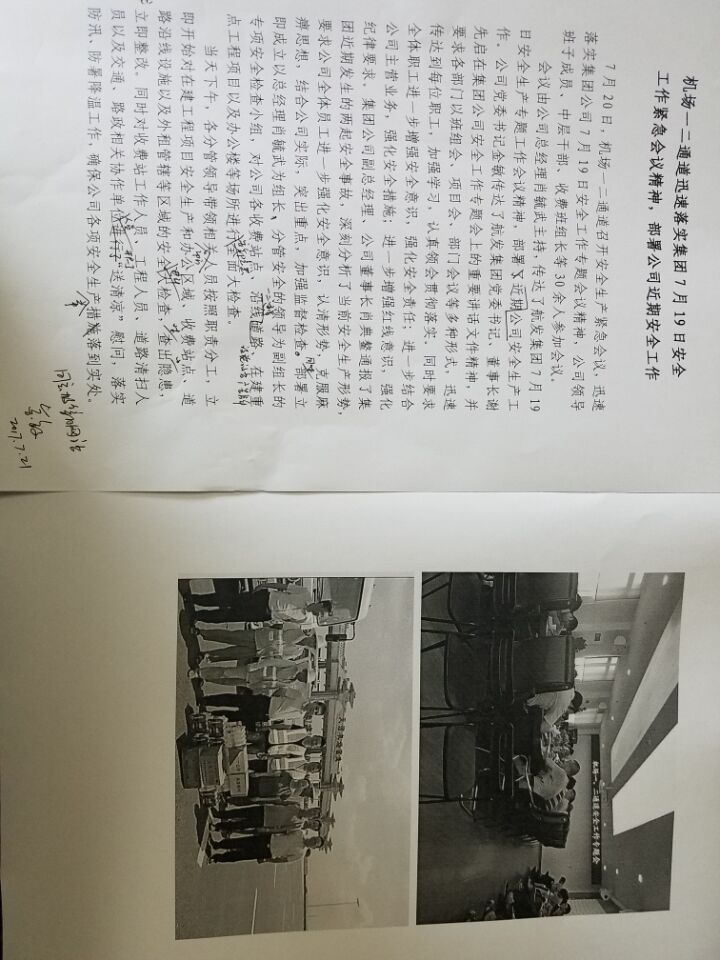 机场一二通道迅速落实集团7月19日安全
工作紧急会议精神，部署公司近期安全工作
7月20日，机场一二通道召开安全生产紧急会议，迅速
落实集团公司7月19日安全工作专题会议精神，公司领导
班子成员、中层干部、收费班组长等30余人参加会议。
会议由公司总经理肖毓武主持，传达了航发集团7月19
日安全生产专题工作会议精神，部署了近期公司安全生产工
作。公司党委书记金敏传达了航发集团党委书记、董事长谢
先启在集团公司安全工作专题会上的重要讲话文件精神，并
要求各部门以班组会、项目会、部门会议等多种形式，迅速
传达到每位职工，加强学习，认真领会贯彻落实，同时要求
全体职工进一步增强安全意识，强化安全责任；进一步结合
公司主营业务，强化安全措施；进一步增强红线意识，强化
纪律要求。集团公司副总经理、公司董事长肖典鳌通报了集
团近期发生的两起安全事故，深刻分析了当前安全生产形势，
要求公司全体员工进一步强化安全意识，认清形势、克服麻
痹思想，结合公司实际，突出重点，加强监督检查。部署立
即成立以总经理肖毓武为组长、分管安全的领导为副组长的
专项安全检查小组，对公司各收费站点、沿线道路、在建重
点工程项目以及办公楼等场所进行全面大检查。
当天下午，各分管领导带领相关人员按照职责分工，立
即开始对在建工程项目安全生产和办公区域、收费站点、道
路沿线设施以及外租管辖等区域的安全大检查，查出隐患，
立即整改。同时对收费站工作人员、工程人员、道路清扫人
员以及交通、路政相关协作单位进行了“送清凉”慰问，落实
防汛、防暑降温工作，确保公司各项安全生产措施落到实处。
2017.7.21
机场一、二通道安全工作专题会